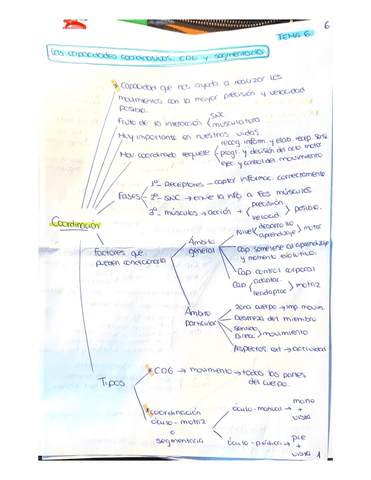 6
TEMA 6.
Las capacidades coordinativas: COG y segmentaria
* Capacidad que nos ayuda a realizar los
movimientos con la mayor precisión y velocidad
posible.
Fruto de la interacción SNC
musculatura
Muy importante en nuestras vidas.
Mov. coordinado requiere
recog. inform. y elab. resp.
progr. y decisión del acto motor
ejec. y control del movimiento
Fases
1º- Receptores - captar informac. correctamente
2º- SNC → envíe la info a los músculos
3º- músculos → acción + precisión
velocid posible.
Coordinación
Factores que
pueden condicionarla
Ámbito
general
Nivel desarrollo
aprendizaje motor
Cap. someterse al aprendizaje
y momento evolutivo.
Cap. control corporal
Cap adaptar
readaptar motriz
Ámbito
particular
Zona cuerpo → imp. movim.
Destreza del miembro
Sentido
Direc. movimiento
Aspectos ext → actividad
Tipos
* COG → movimiento → todas las partes
del cuerpo.
* coordinación
óculo-motriz
o
segmentaria
óculo-manual → mano
+
vista
óculo-pédica → pie
+
vista
1